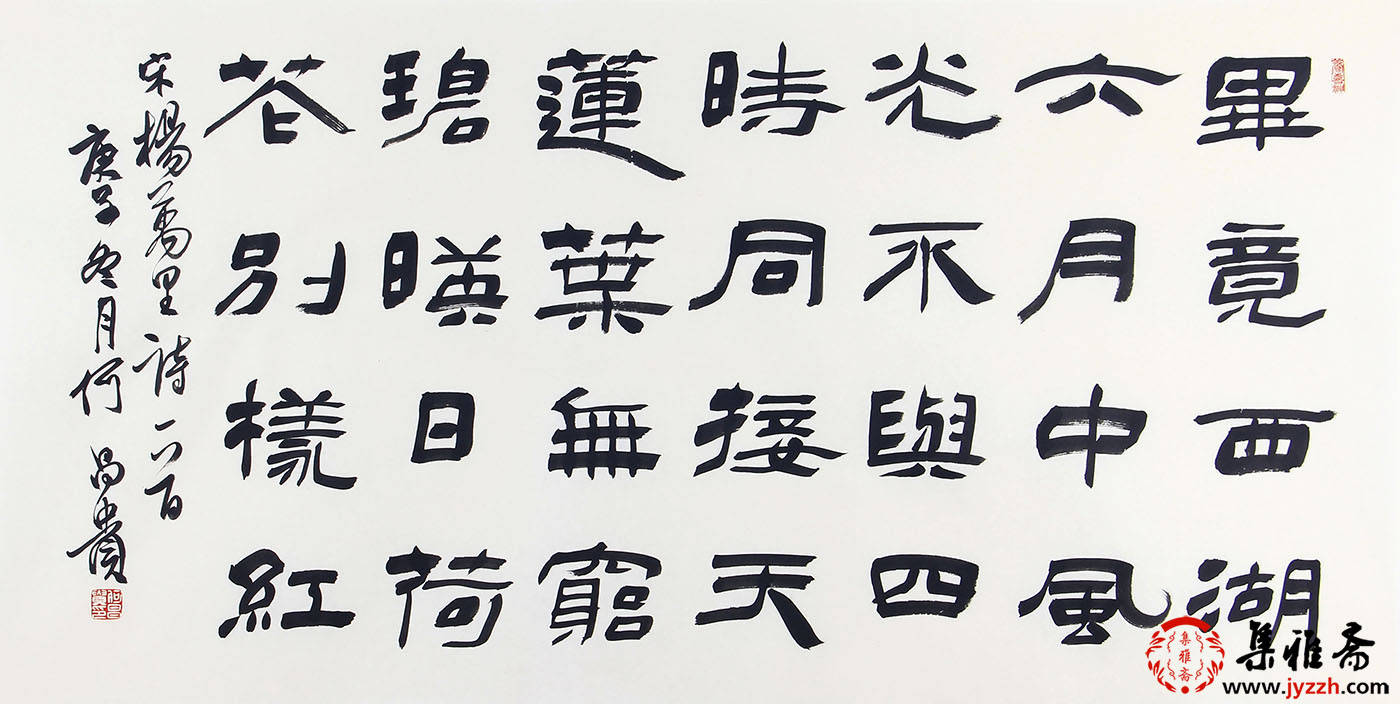 畢竟西湖
六月中風
光不與四
時同接天
蓮葉無窮
碧暎日荷
花别樣紅
宋楊萬里詩一首
庚子冬月何昌貴
集雅斋
集雅斋
www.jyzzh.com